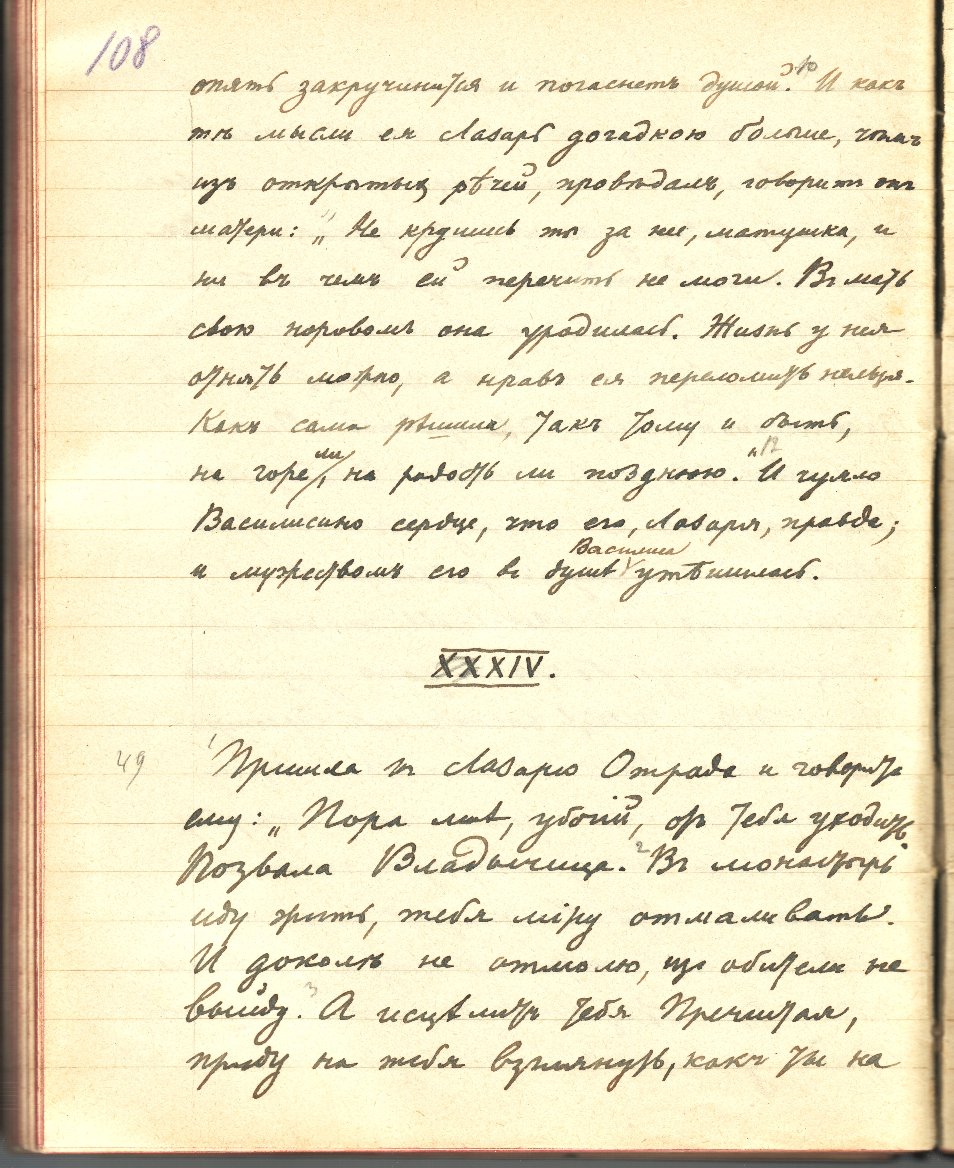 108
опять закручинится и погаснетъ душой. 10 И какъ
тѣ мысли ея Лазарь догадкою больше, чѣмъ
изъ открытыхъ рѣчей, провѣдалъ, говоритъ онъ
матери: „Не крушись ты за нее, матушка, и
ни въ чемъ ей перечить не моги. Въ мать
свою норовомъ она уродилась. Жизнь у нея
отнять можно, а нравъ ея переломить нельзя.
Какъ сама рѣшила, такъ тому и быть,
на горе ли, на радость ли позднюю." 12 И чуяло
Василисино сердце, что его, Лазаря, правда;
и мужествомъ его въ душѣ Василиса утѣшилась.
XXXIV.
49 1 Пришла къ Лазарю Отрада и говоритъ
ему: „Пора мнѣ, убогій, отъ тебя уходить.
Позвала Владычица. 2 Въ монастырь
иду жить, тебя міру отмаливать.
И доколѣ не отмолю, изъ обители не
выйду. 3 А исцѣлитъ тебя Пречистая,
приду на тебя взглянуть, какъ ты на